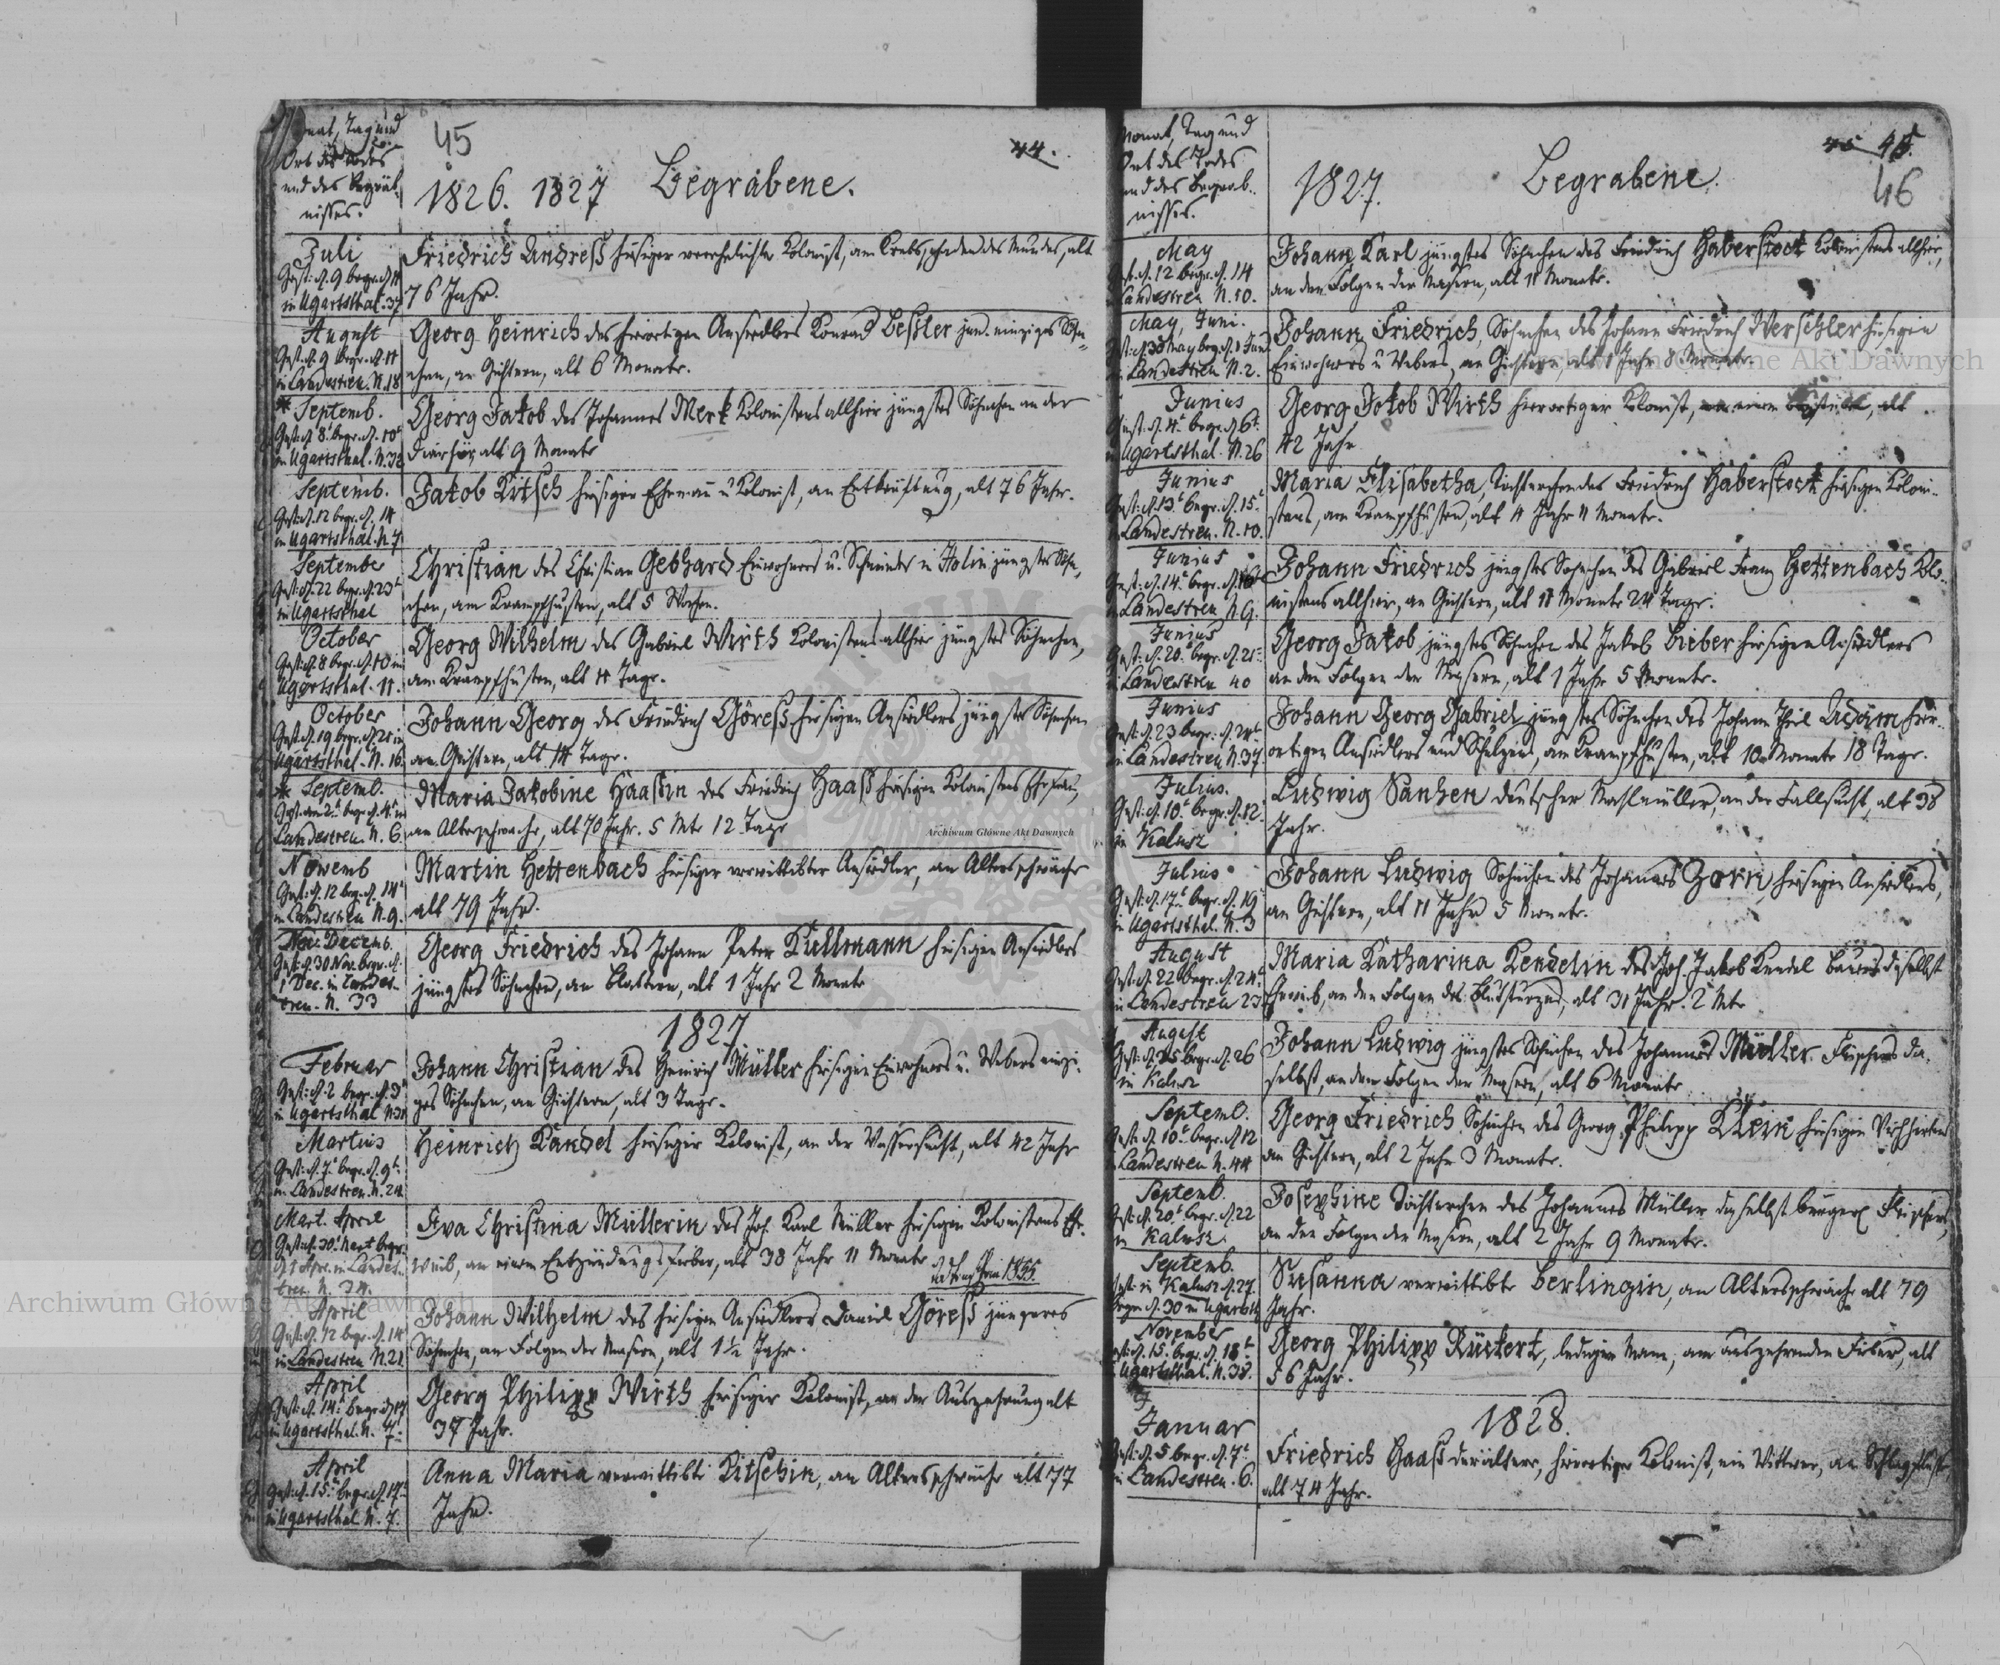 Monat, Tag und
Ort des Todes
und des Begräb-
nisses.
45
44.
1826. 1827 Begrabene.
Juli
Gest: d. 9 begr. d. 11
in Ugartsthal. 37
Friedrich Andreß hiesiger verehelichter Kolonist, am Krebsschaden des Mundes, alt
76 Jahr.
August
Gest. d. 9 begr. d. 11
in Landestreu. N. 18
Georg Heinrich des hierortigen Ansiedlers Konrad Beßler jun. einziges Söhn-
chen, an Gichtern, alt 6 Monate.
* Septemb.
Gest. d. 8t begr. d. 10t
in Ugartsthal. N. 32
Georg Jakob des Johannes Merk Kolonistens allhier jüngstes Söhnchen an der
alt 9 Monate
Septemb.
Gest. d. 12 begr. d. 14
in Ugartsthal. N. 7
Jakob Kitsch hiesiger Ehemann u Kolonist, an Entkräftung, alt 76 Jahr.
September
Gest. d. 22 begr. d. 23t
in Ugartsthal
Christian des Christian Gebhard Einwohners u. Schmieds in Holin jüngstes Söhn-
chen, am Krampfhusten, alt 5 Wochen.
October
Gest. d. 8 begr. d. 10 in
Ugartsthal. 11.
Georg Wilhelm des Gabriel Wirth Kolonistens allhier jüngstes Söhnchen,
am Krampfhusten, alt 11 Tage.
October
Gest. d. 19 begr. d. 21 in
Ugartsthal. N. 16.
Johann Georg des Friedrich Göreß hiesigen Ansiedlers jüngstes Söhnchen
an Gichtern, alt 14 Tage.
* Septemb.
Gest. am 2t begr. d. 4t in
Landestreu. N. 6.
Maria Jakobine Haaßin des Friedrich Haaß hiesigen Kolonistens Ehefrau,
an Altersschwäche, alt 70 Jahr. 5 Mte 12 Tage
Novemb
Gest. d. 12 begr. d. 14t
in Landestreu N. 9.
Martin Hettenbach hiesiger verwittibter Ansiedler, an Altersschwäche
alt 79 Jahr.
Nov. Decemb.
Gest: d. 30 Nov. begr. d.
1 Dec. in Landes-
treu. N. 33
Georg Friedrich des Johann Peter Kullmann hiesigen Ansiedlers
jüngstes Söhnchen, an Blattern, alt 1 Jahr 2 Monate
1827
Februar
Gest: d. 2 begr. d. 3t
in Ugartsthal
Johann Christian des Heinrich Müller hiesigen Einwohners u. Webers einzi-
ges Söhnchen, an Gichtern, alt 3 Tage.
Martius
Gest: d. 7t begr. d. 9t
in Landestreu. N. 24
Heinrich Kandel hiesiger Kolonist, an der Wassersucht, alt 42 Jahr
Mart. April
Gest: d. 30t Mart begr.
d. 1 Apr. in Landes-
treu. N. 34.
Eva Christina Müllerin des Joh. Karl Müller hiesigen Kolonistens Ehe-
weib, an einem Entzündungsfieber, alt 38 Jahr 11 Monate
1835.
April
Gest. d. 12 begr. d. 14t
in Landestreu N. 21
Johann Wilhelm des hiesigen Ansiedlers Daniel Göreß jüngeres
Söhnchen, an Folgen der Masern, alt 1½ Jahr.
April
Gest. d. 14t begr. d. 17
in Ugartsthal. N. 4
Georg Philipp Wirth hiesiger Kolonist, an der Auszehrung alt
37 Jahr.
April
Gest. d. 15t begr. d. 17t
in Ugartsthal N. 7.
Anna Maria verwittibte Kitschin, an Altersschwäche alt 77
Jahr.
Monat, Tag und
Ort des Todes
und des Begräb-
nisses.
45.
46
1827. Begrabene.
May
Gest. d. 12 begr. d. 14
Landestreu N. 10.
Johann Karl jüngstes Söhnchen des Friedrich Haberstock Kolonistens allhier,
an den Folgen der Masern, alt 11 Monate.
May, Juni.
Gest: d. 30 May begr. d. 1 Juni
in Landestreu N. 2.
Johann Friedrich, Söhnchen des Johann Friedrich Werschler hiesigen
Einwohners u Webers, an Gichtern, alt 1 Jahr 8 Monate.
Junius
Gest. d. 4t begr. d. 6t
Ugartsthal. N. 26
Georg Jakob Wirth hierortiger Kolonist, an einem alt
42 Jahr
Junius
Gest. d. 13t begr. d. 15t
in Landestreu. N. 10.
Maria Elisabetha, Töchterchen des Friedrich Haberstock hiesigen Koloni-
stens, am Krampfhusten, alt 4 Jahr 11 Monate.
Junius
Gest: d. 14t begr. d. 16
Landestreu N. 9.
Johann Friedrich jüngstes Söhnchen des Gabriel Franz Hettenbach Kolo-
nistens allhier, an Gichtern, alt 11 Monate 24 Tage.
Junius
Gest. d. 20t begr. d. 21t
in Landestreu 40
Georg Jakob jüngstes Söhnchen des Jakob Bieber hiesigen Ansiedlers
an den Folgen der Masern, alt 1 Jahr 5 Monate.
Junius
Gest: d. 23 begr: d. 24t
in Landestreu N. 37.
Johann Georg Gabriel jüngstes Söhnchen des Johann Theil Adam hier-
ortigen Ansiedlers und Schulzens, am Krampfhusten, alt 10 Monate 18 Tage.
Julius.
Gest: d. 10t begr. d. 12.
in Kalusz
Ludwig Sanhen deutscher Mahlmüller, an der Fallsucht, alt 38
Jahr.
Julius
Gest. d. 17t begr. d. 19
in Ugartsthal. N. 3
Johann Ludwig Söhnchen des Johannes Zorn, hiesigen Ansiedlers,
an Gichtern, alt 11 Jahr 5 Monate.
August
Gest: d. 22 begr. d. 24t
in Landestreu 23
Maria Katharina Kendelin des Joh. Jakob Kendel Bauers daselbst
Eheweib, an den Folgen des Blutsturzes, alt 31 Jahr. 2 Mte
August
Gest: d. 25 begr. d. 26
in Kalusz
Johann Ludwig jüngstes Söhnchen des Johannes Müller. Fleischers da-
selbst, an den Folgen der Masern, alt 6 Monate
Septemb.
Gest. d. 10t begr. d. 12
Landestreu N. 44
Georg Friedrich Söhnchen des Georg Philipp Klein hiesigen Viehhirtens
an Gichtern, alt 2 Jahr 3 Monate.
Septemb.
Gest: d. 20t begr. d. 22
in Kalusz.
Josephine Töchterchen des Johannes Müller daselbst bürgerl Fleischers,
an den Folgen der Masern, alt 2 Jahr 9 Monate.
Septemb.
Gest: in Kalusz d. 27.
begr. d. 30 in Ugartsth.
Susanna verwittibte Berlingin, an Altersschwäche alt 79
Jahr.
November
Gest: d. 15. begr. d. 18t
Ugartsthal. N. 38.
Georg Philipp Rückert, lediger Mann, am auszehrenden Fieber, alt
56 Jahr.
1828.
Januar
Gest: d. 5 begr. d. 7t
in Landestreu. 6.
Friedrich Haaß der ältere, hierortiger Kolonist, ein Wittwer, an Schlagfluß,
alt 74 Jahr.
Archiwum Główne Akt Dawnych
Archiwum Główne Akt Dawnych
Archiwum Główne Akt Dawnych